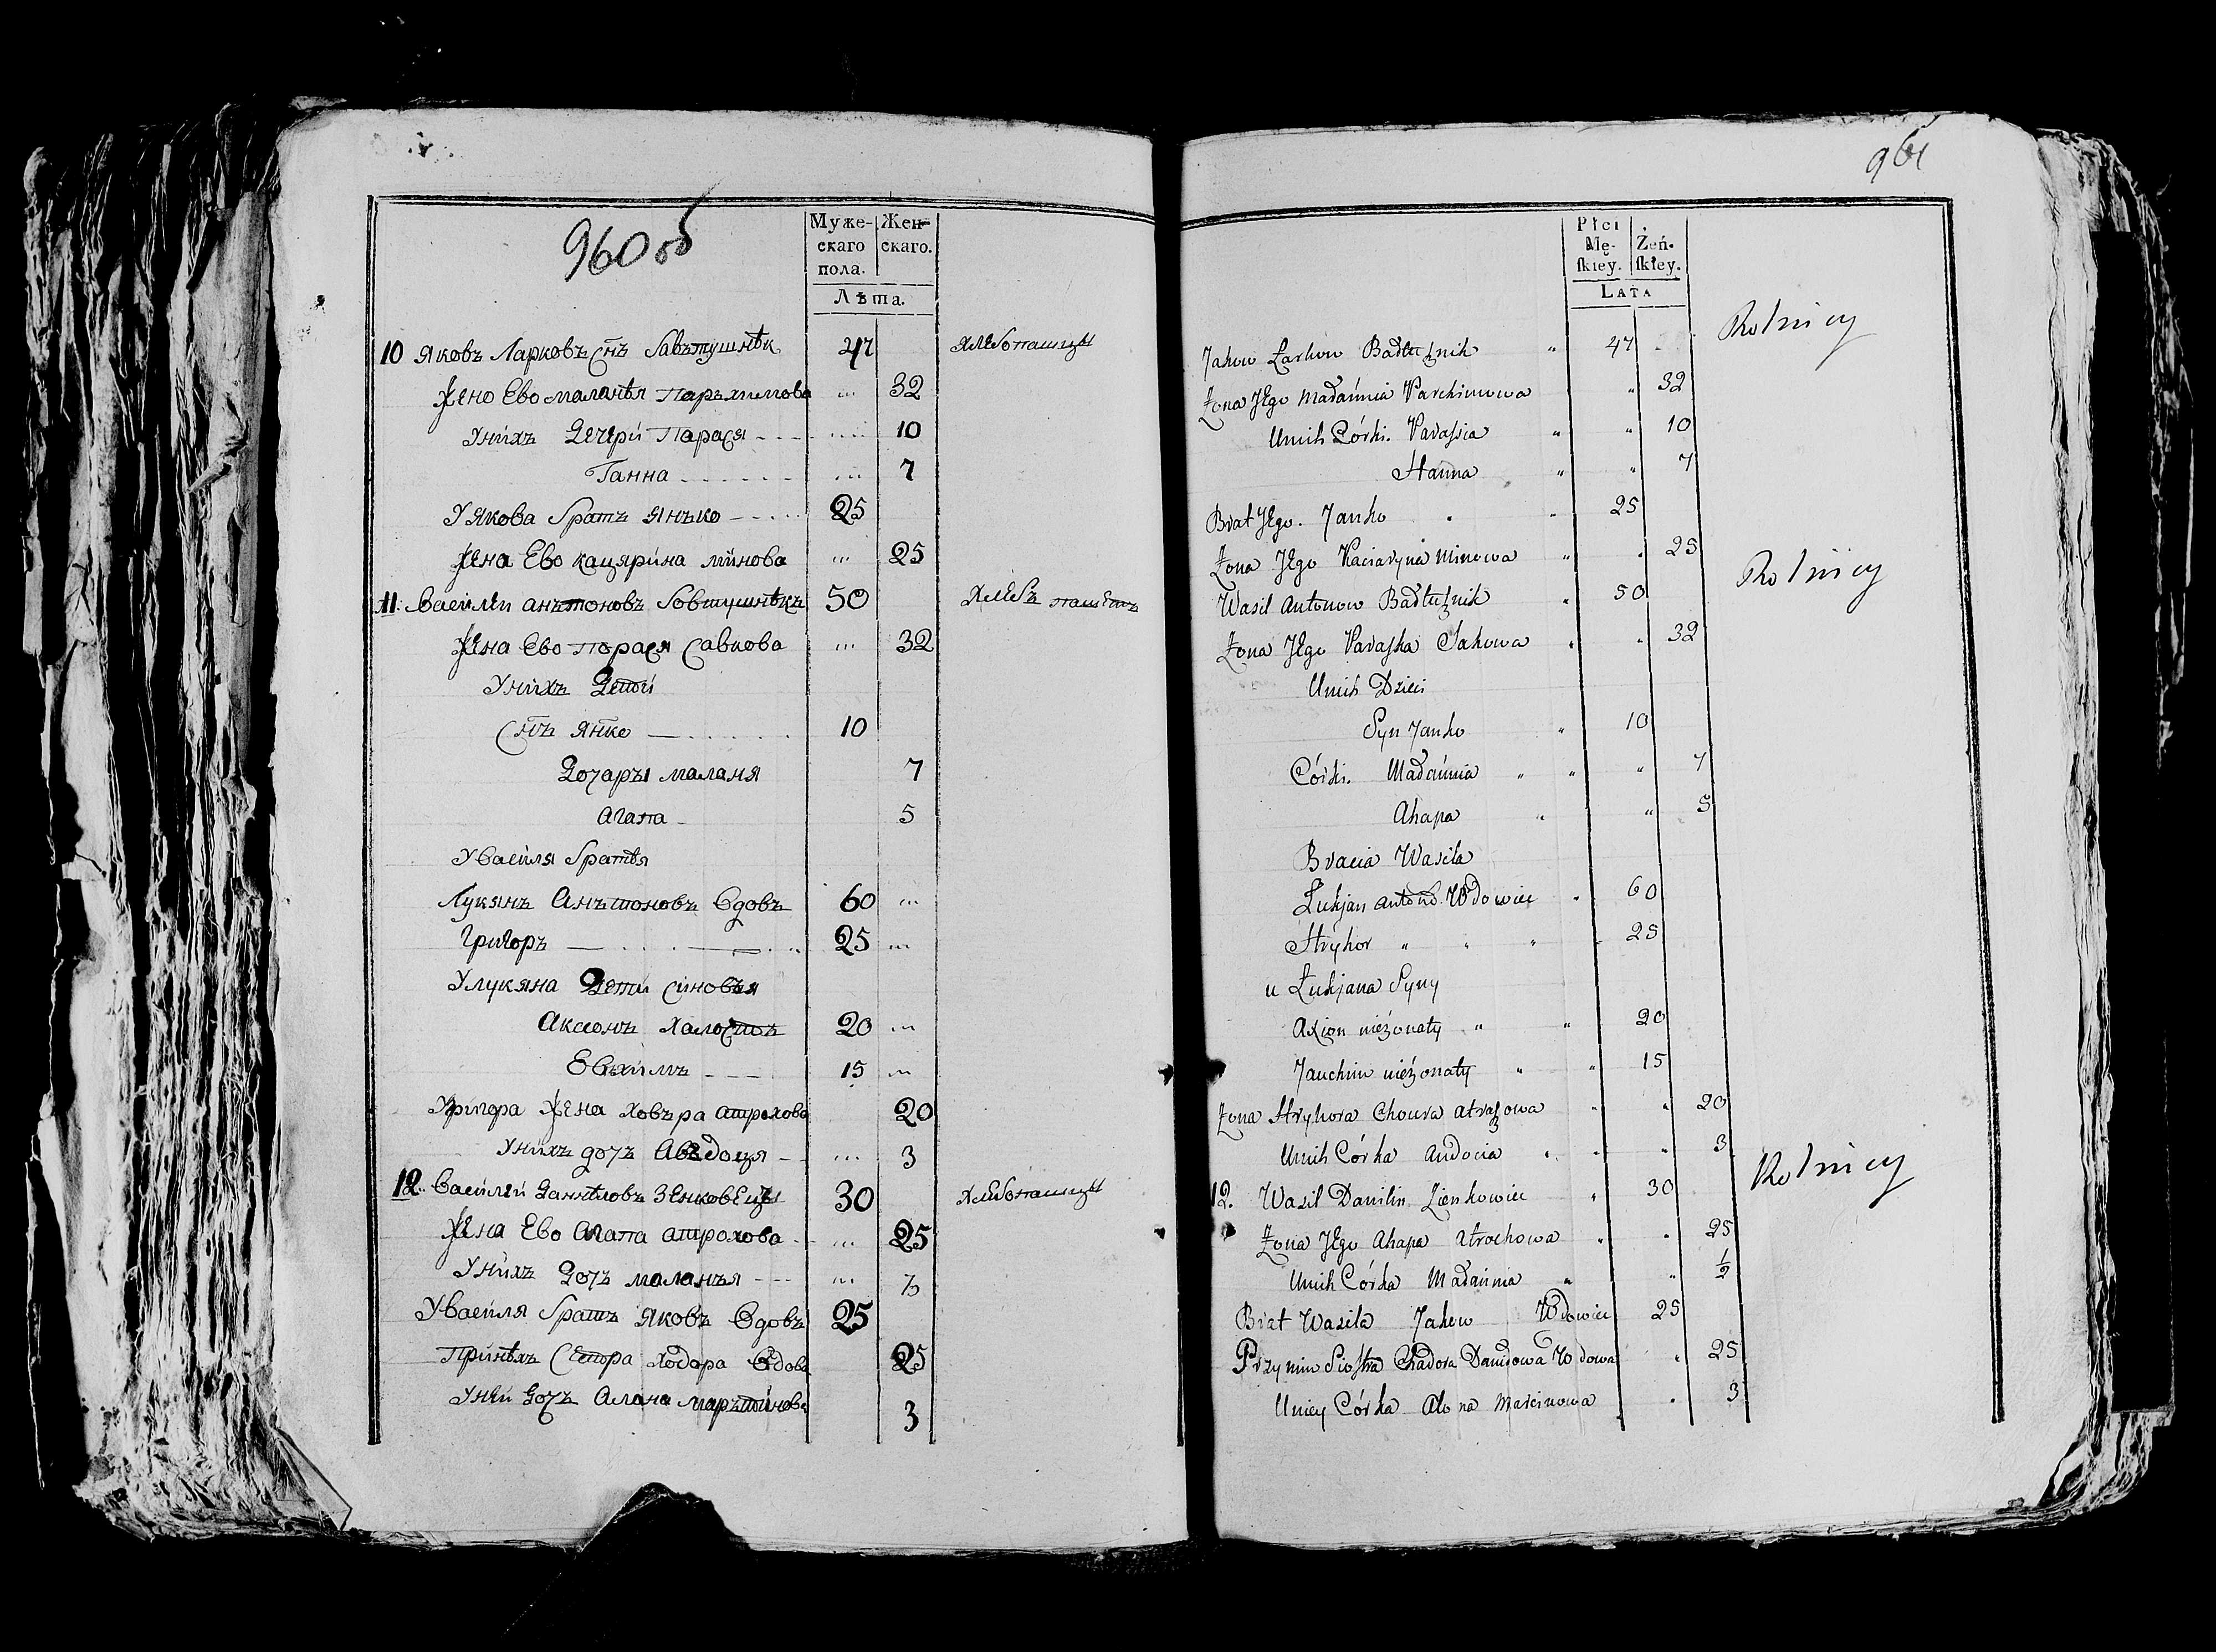 960 об
Муже-
скаго
пола.
Жен-
скаго.
Лѣта.
10 Яковъ Ларковъ снъ Бавтушнѣк 47 хлебопашцы
Жено Ево маланѣя Пархимова ... 32
Унихъ Дечери Парася ... 10
Ганна ... 7
У Якова братъ Янъко 25
Жена Ево кацярина минова ... 25
11 Василеи анътоновъ Бовтушнѣкъ 50 хлебъ пашецъ
Жена Ево Парася Савкова ... 32
Унихъ Дети
Снъ Янко 10
Дочары маланя 7
Агапа 5
У Василя братѣя
Лукянъ Анътоновъ Вдовъ 60 ...
Григоръ 25 ...
У лукяна Дети синовья
Аксионъ Халостъ 20 ...
Евхимъ 15 ...
У григора Жена ховъра атрохова 20
Унихъ дочъ Авдоця ... 3
12 Василеи Данѣловъ Зенковецъ 30 хлебопашцы
Жена Ево Агапа атрохова ... 25
Унихъ Дочъ маланья ... ½
У Василя братъ Яковъ Вдовъ 25
Принѣхъ Сестра ходора Вдова 25
Унеи Дочъ Алана марътинова 3
961
Płci
Mę-
ſkiey.
Żeń-
ſkiey.
LATA
Jakow Łarkow Badtużnik 47 Rolnicy
Żona Jego Madańnia Parchimowa 32
Unich Córki. Parassia 10
Hanna 7
Brat Jego. Janko 25
Żona Jego Kaciaryna Minowa 25
Wasil Antonow Badtużnik 50 Rolnicy
Żona Jego Paraska Sakowa 32
Unich Dzieci
Syn Janko 10
Córki. Madańnia 7
Ahapa 5
Bracia Wasila
Łukjan Antono. Wdowiec 60
Hryhor 25
u Łukjana Syny
Axion nieżonaty 20
Jauchim nieżonaty 15
Żona Hryhora Chowra Atrażowa 20
Unich Córka Audocia 3
12. Wasil Danilin Zienkowiec 30 Rolnicy
Żona Jego Ahapa Atrochowa 25
Unich Córka Madańnia ½
Brat Wasila Jakow Wdowiec 25
Przy nim Siostra Chadora Daniłowa Wdowa 25
Uniey Córka Alona Marcinowa 3